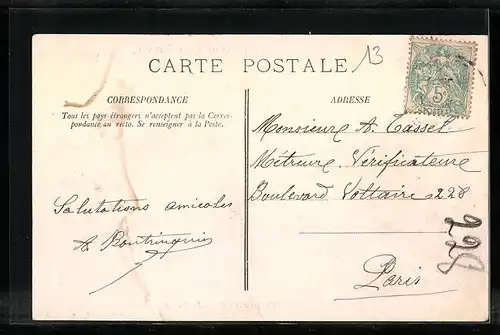 13
CARTE POSTALE
CORRESPONDANCE
Tous les pays étrangers n'acceptent pas la Corres-
pondance au recto. Se renseigner à la Poste.
ADRESSE
5
Monsieur A. Tassel
Métreur Vérificateur
Boulevard Voltaire 228
Paris
228
Salutations amicales
A